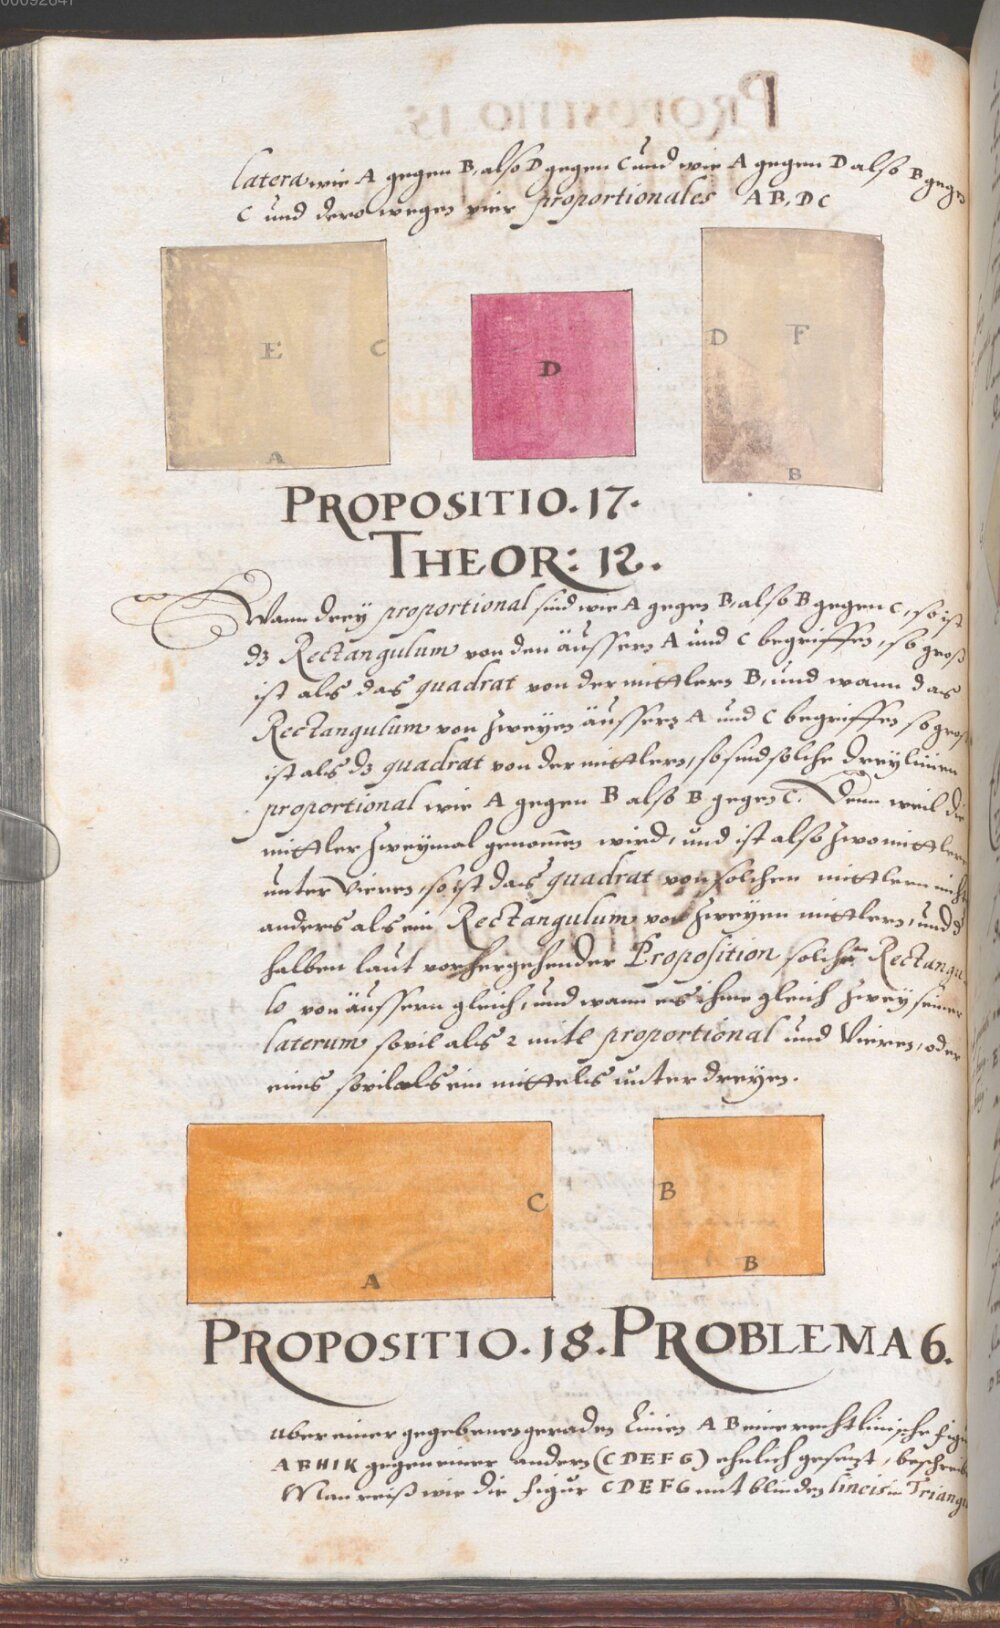 latera wie A gegen B, also D gegen C und wie A gegen D also B gegen
C und derowegen vier proportionales A B, D C
E C A
D
D F B
PROPOSITIO. 17.
THEOR: 12.
Wann dreÿ proportional sind wie A gegen B, also B gegen C, so ist
dz Rectangulum von den äussern A und C begriffen, so groß
ist als das quadrat von der mittlern B, und wann das
Rectangulum von zweÿen äussern A und C begriffen so groß
ist als dz quadrat von der mittlern, so sind solche dreÿ linien
proportional wie A gegen B also B gegen C. Denn weil die
mittler zweÿmal genom̄en wird, und ist also zwo mittlere
unter Vieren, so ist das quadrat von solchen mittlern nichts
anders als ein Rectangulum von zweÿen mittlern, und d
halben laut vorhergehender Proposition solchem Rectangu
lo von äussern gleich, und wann es ihme gleich zweÿ seiner
laterum sovil als 2 mitl proportional und Vieren, oder
eines sovil als ein mittels unter dreÿen.
C A
B B
PROPOSITIO. 18. PROBLEMA 6.
uber einer gegebenen geraden Linien A B eine rechtlinische figu
A B H I K gegen einer andern (C D E F G) ehnlich gesetzt, beschreib
Man reiß wie die figur C D E F G mit blinden lineis in Triangu